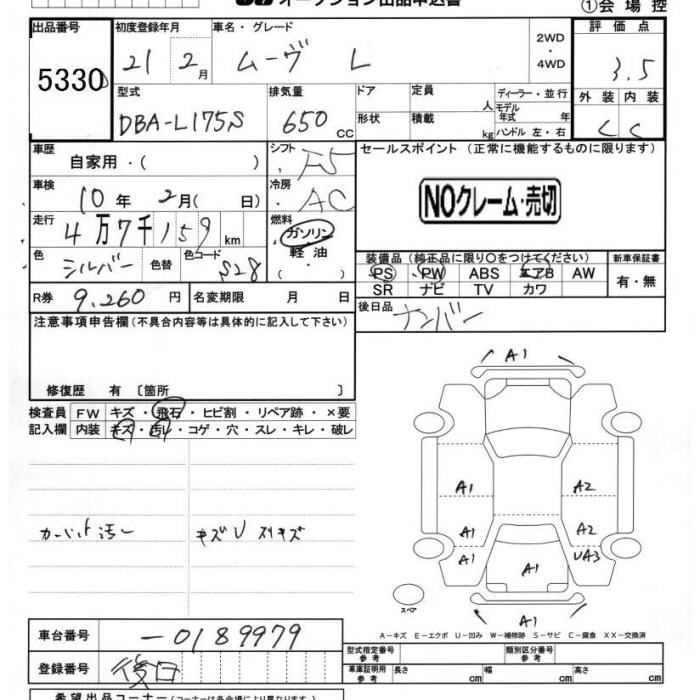 オークション出品申込書
①会場控
出品番号 5330
初度登録年月 21 2月
車名・グレード ムーヴ L
2WD・4WD
評価点 3.5
型式 DBA-L175S
排気量 650 CC
ドア
形状
定員 人
積載 kg
ディーラー・並行
モデル年式 年
ハンドル 左・右
外装 内装
C C
車歴 自家用・( )
シフト F5
セールスポイント (正常に機能するものに限ります)
NOクレーム・売切
車検 10年 2月( 日)
冷房 AC
走行 4万7千159km
燃料 ガソリン
軽油
( )
色 シルバー 色替 色コード S28
装備品 (純正品に限り○をつけてください)
新車保証書
PS PW ABS エアB AW
SR ナビ TV カワ
有・無
R券 9,260円
名変期限 月 日
後日品 ナンバー
注意事項申告欄(不具合内容等は具体的に記入して下さい)
修復歴 有 〔箇所 〕
検査員記入欄
FW キズ・飛石・ヒビ割・リペア跡・×要
内装 キズ・汚レ・コゲ・穴・スレ・キレ・破レ
A1
A1 A2
A1 A2
A1 A1 UA3
A1
カーペット汚レ
キズU スリキズ
スペア
A-キズ E-エクボ U-凹み W-補修跡 S-サビ C-腐食 XX-交換済
車台番号 -0189979
登録番号 後日
型式指定番号 参考
類別区分番号 参考
車庫証明用 参考 長さ cm 幅 cm 高さ cm
希望出品コーナー(各コーナーは各会場により異なります)